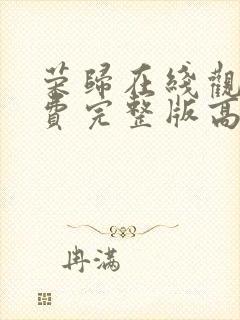 荣歸在綫觀
費完整版高
冉滿